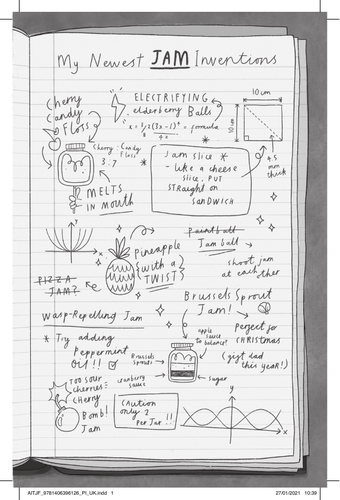 My Newest JAM Inventions
Cherry
Candy
Floss
ELECTRIFYING
elderberry Balls
= formula
10 cm
10 cm
4.5
mm
thick
Cherry : Candy
Floss
3.7
MELTS
IN MOUTH
Jam slice *
- Like a cheese
slice, PUT
STRAIGHT ON
SANDWICH
y
x
PIZZA
JAM?
Pineapple
(with a
TWIST)
Paintball
Jam ball
shoot jam
at each other
Brussels Sprout
Jam!
perfect for
CHRISTMAS
(gift dad
this year!)
Wasp-Repelling Jam
* Try adding
Peppermint
Oil!!
apple
sauce
to balance?
Brussels
Sprouts
cranberry
sauce
sugar
TOO SOUR
cherries
Cherry
Bomb!
Jam
CAUTION
only 2
Per Jar!!
y
x
AITJF_9781406396126_PI_UK.indd 1
27/01/2021 10:39